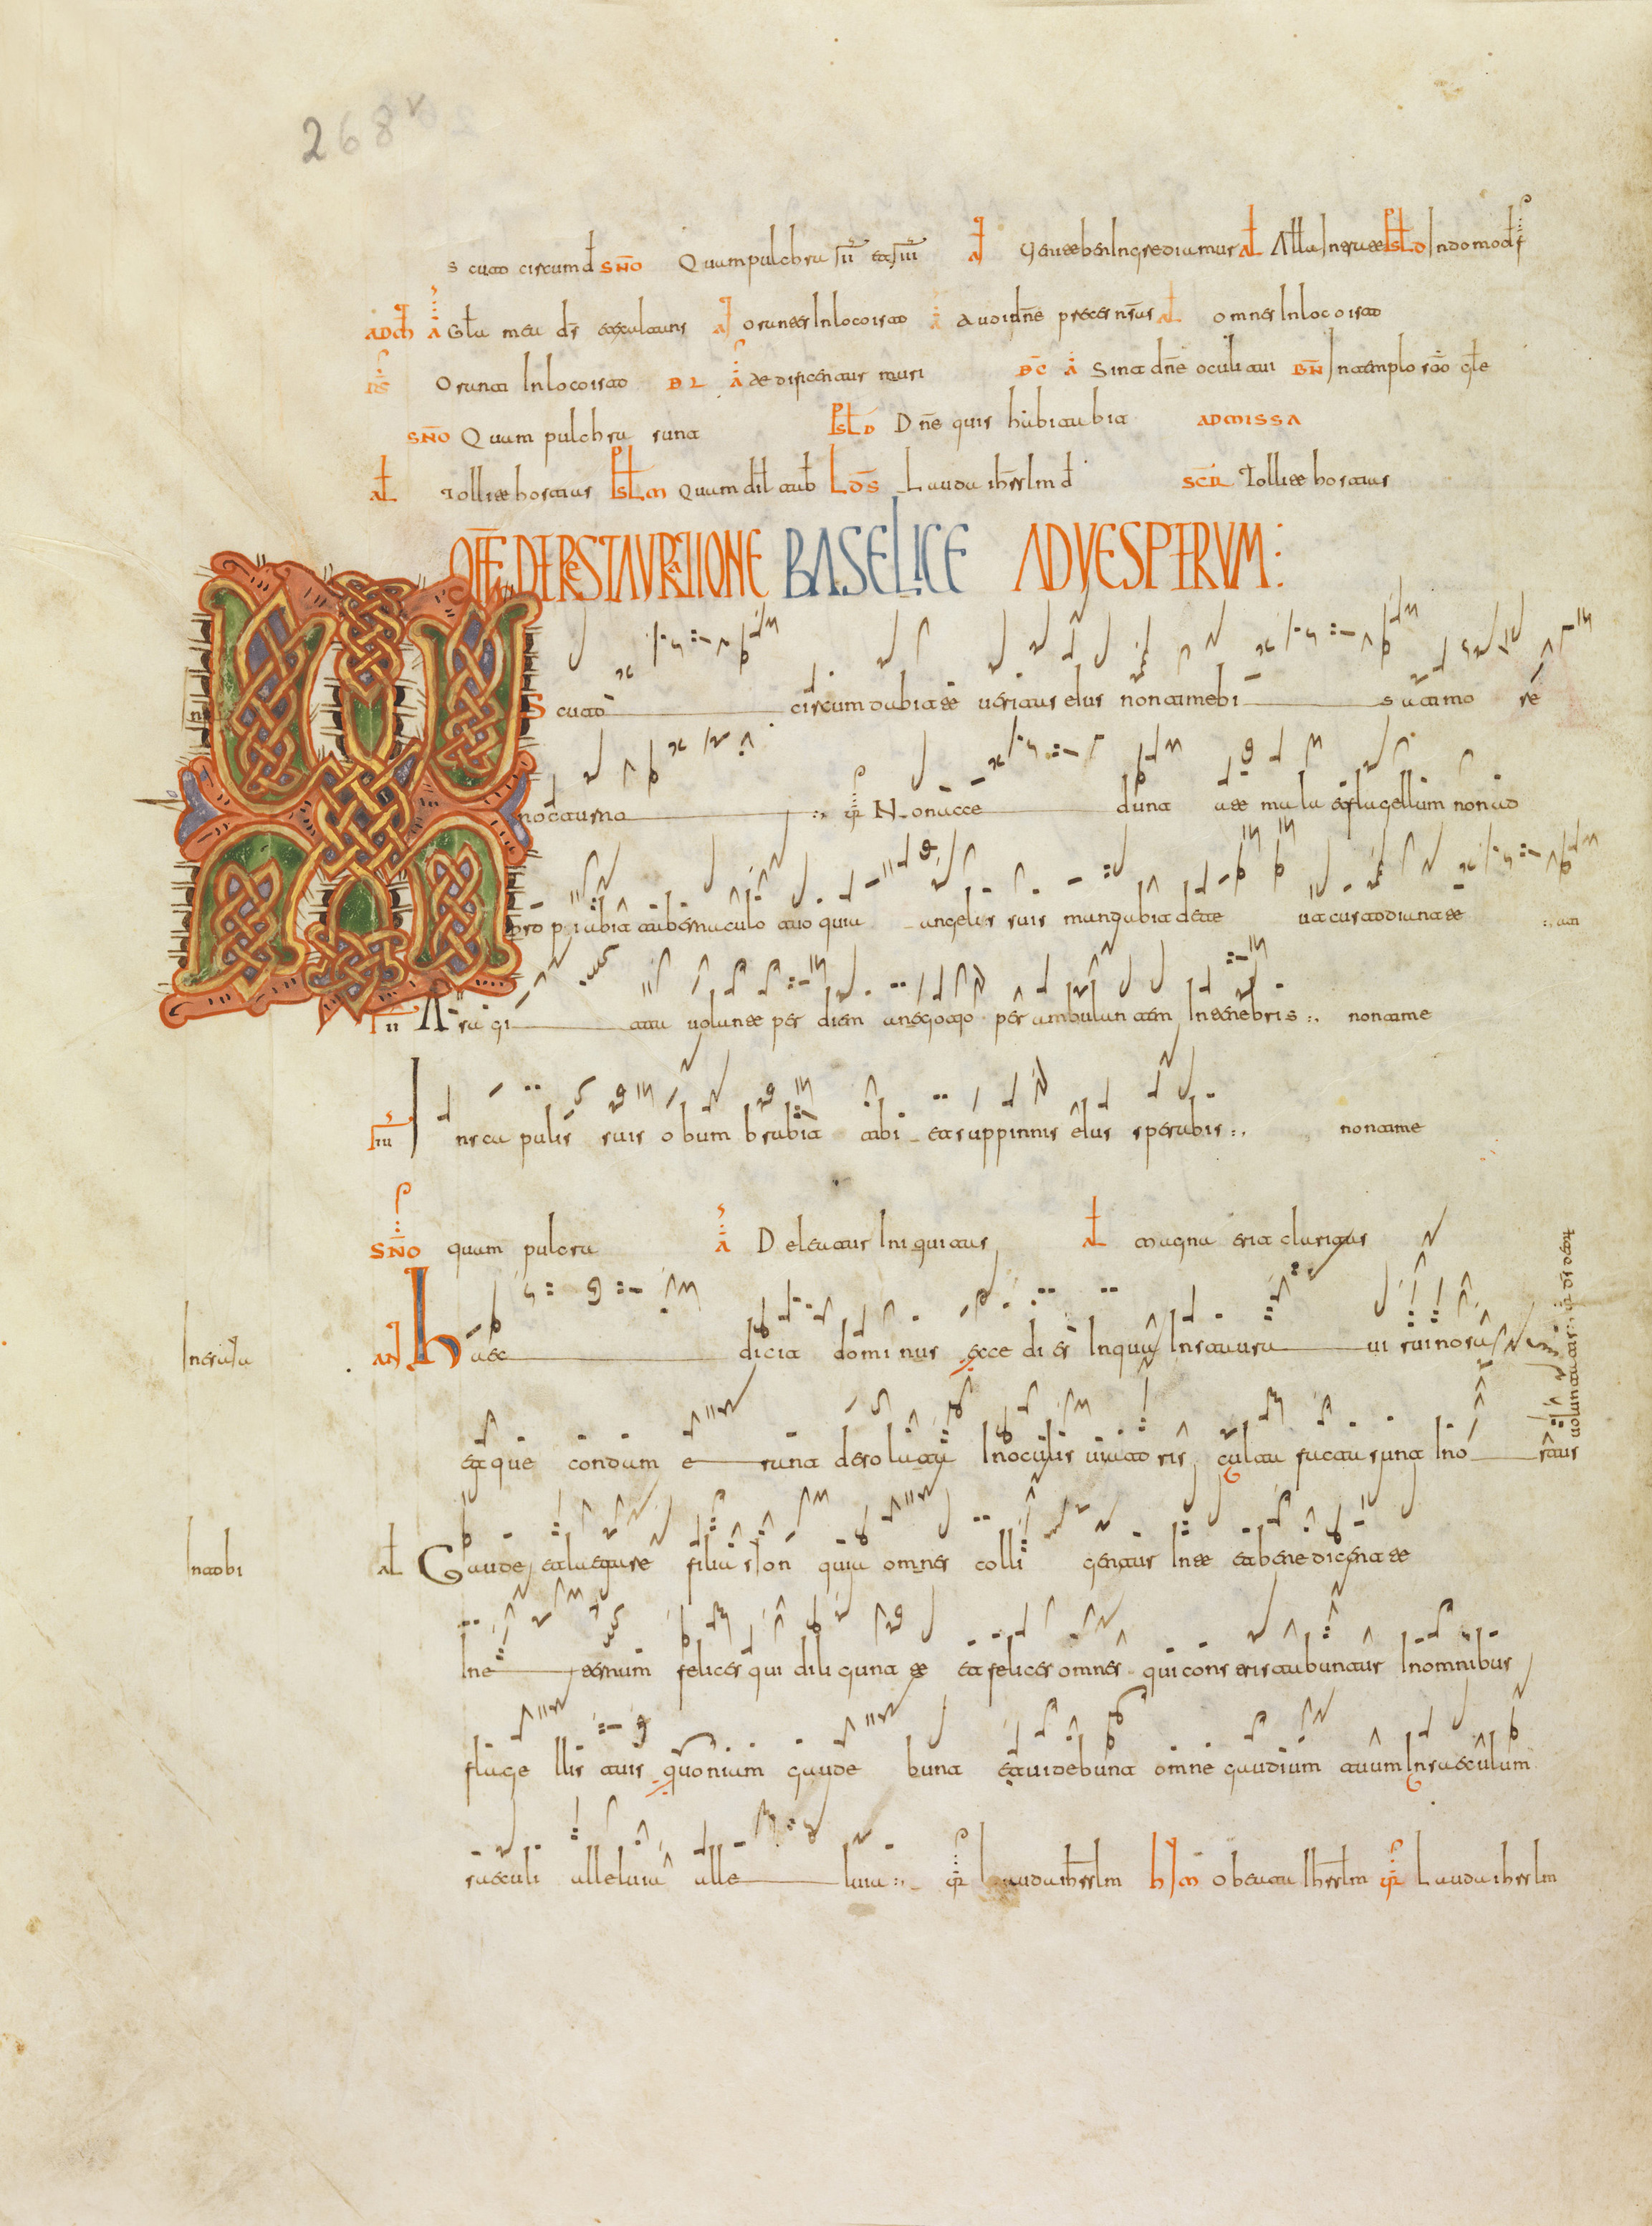 Scuto circumd SNO Quam pulchra II et III A Ingrediamur AL Alla Intra te PSLD In domo d
ADM A Gla mea ds A orantes In loco isto A Audi dne preces nsas AL omnes In loco isto
Orant In loco isto BL A aedificentur muri BC A Sint dne oculi tui BN In templo sco gle
SNO Quam pulchra sunt PSLD Dne quis habitabit AD MISSA
AL Tollite hostias PSLM Quam dil tab LDS Lauda ihrslm d SCR Tollite hostias
OFF DE RESTAURATIONE BASELICE AD VESPERUM:
Scuto circumdabit te veritas eius non timebis a timore
nocturno :, VR Non accedunt ad te mala et flagellum non ad
propiabit tabernaculo tuo quia angelis suis mandabit de te ut custodiant te :,
II A sagitta volante per diem a negotio perambulantem In tenebris :, non time
III In scapulis suis obumbrabit tibi et sub pinnis eius sperabis :, non time
SNO quam pulcra A Deleatur Iniquitas AL magna erit claritas
AN Haec dicit dominus ecce dies In qua Instaura vi ruinosa
et que condam erunt desolata In oculis viatoris culta facta sunt In nostas
voluntatis :,
AL Gaude et laetare filia sion quia omnes colligentur In te et benedicent te
In eternum felices qui diligunt te et felices omnes qui constristabuntur In omnibus
flagellis tuis quoniam gaudebunt et videbunt omne gaudium tuum In saeculum
saeculi alleluia alleluia :, VR Lauda ihrslm HM O beata Ihrslm VR Lauda ihrslm
268v